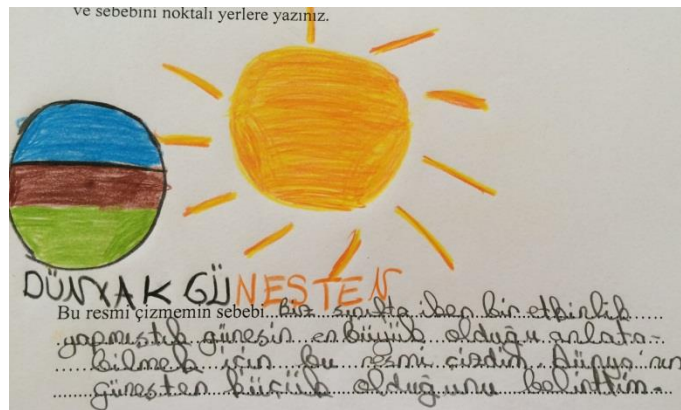 ve sebebini noktalı yerlere yazınız.
DÜNYA K GÜNEŞTEN
Bu resmi çizmemin sebebi Biz sınıfta iken bir etkinlik
yapmıştık güneşin en büyük olduğu anlata-
bilmek için bu resmi çizdim Dünya'nın
güneşten küçük olduğunu belirttim.